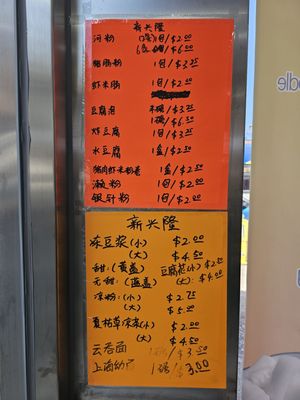 新兴隆
河粉 (2包)1包/$2.00
6包/$6.00
猪肠粉 1包/$3.25
虾米肠 1包/$2.00
豆腐泡 半磅/$3.25
1磅/$6.50
炸豆腐 1包/$3.25
水豆腐 1盒/$2.50
猪肉虾米粉卷 1包/$2.50
濑粉 1包/$2.00
银针粉 1包/$2.00
新兴隆
豆浆(小) $2.00
(大) $4.50
甜:(黄盖) 豆腐花(小) $2.50
无甜:(蓝盖) (大): $4.00
凉粉:(小) $2.75
(大) $5.00
夏枯草凉茶(小) $2.00
(大) $4.50
云吞面 1磅/$3.50
上海幼 1磅/$3.00